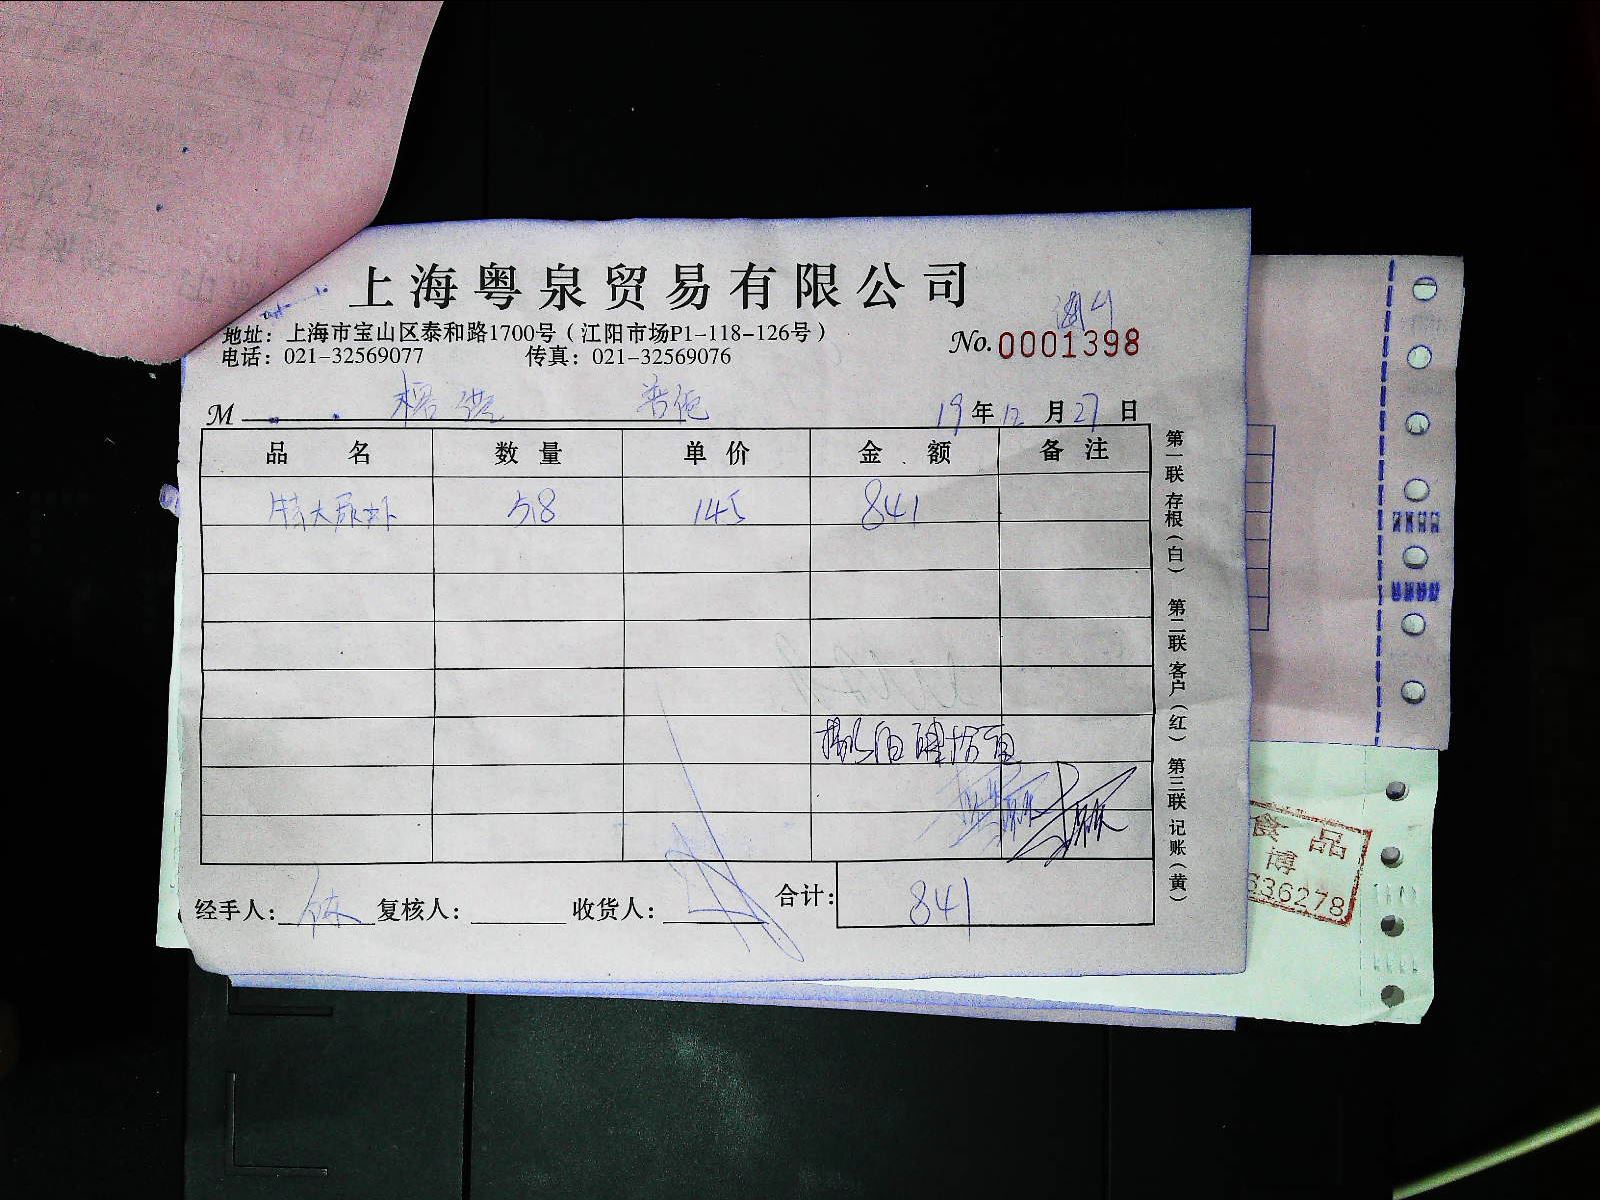 上海粤泉贸易有限公司
地址：上海市宝山区泰和路1700号（江阳市场P1-118-126号）
No.0001398
电话：021-32569077 传真：021-32569076
M
19年12月27日
品名 数量 单价 金额 备注
特大尿虾 5.8 145 841
经手人： 复核人： 收货人： 合计：841
第一联 存根（白） 第二联 客户（红） 第三联 记账（黄）
食品
博
636278